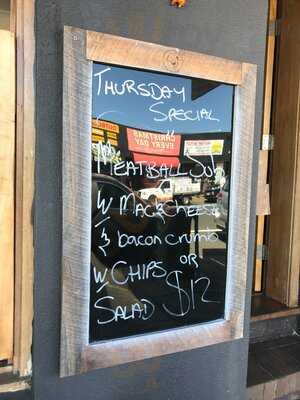 THURSDAY
SPECIAL
MEATBALL SUB
W MAC & CHEESE
& bacon crumb
W CHIPS OR
SALAD $12
CHRISTMAS
EVERY DAY